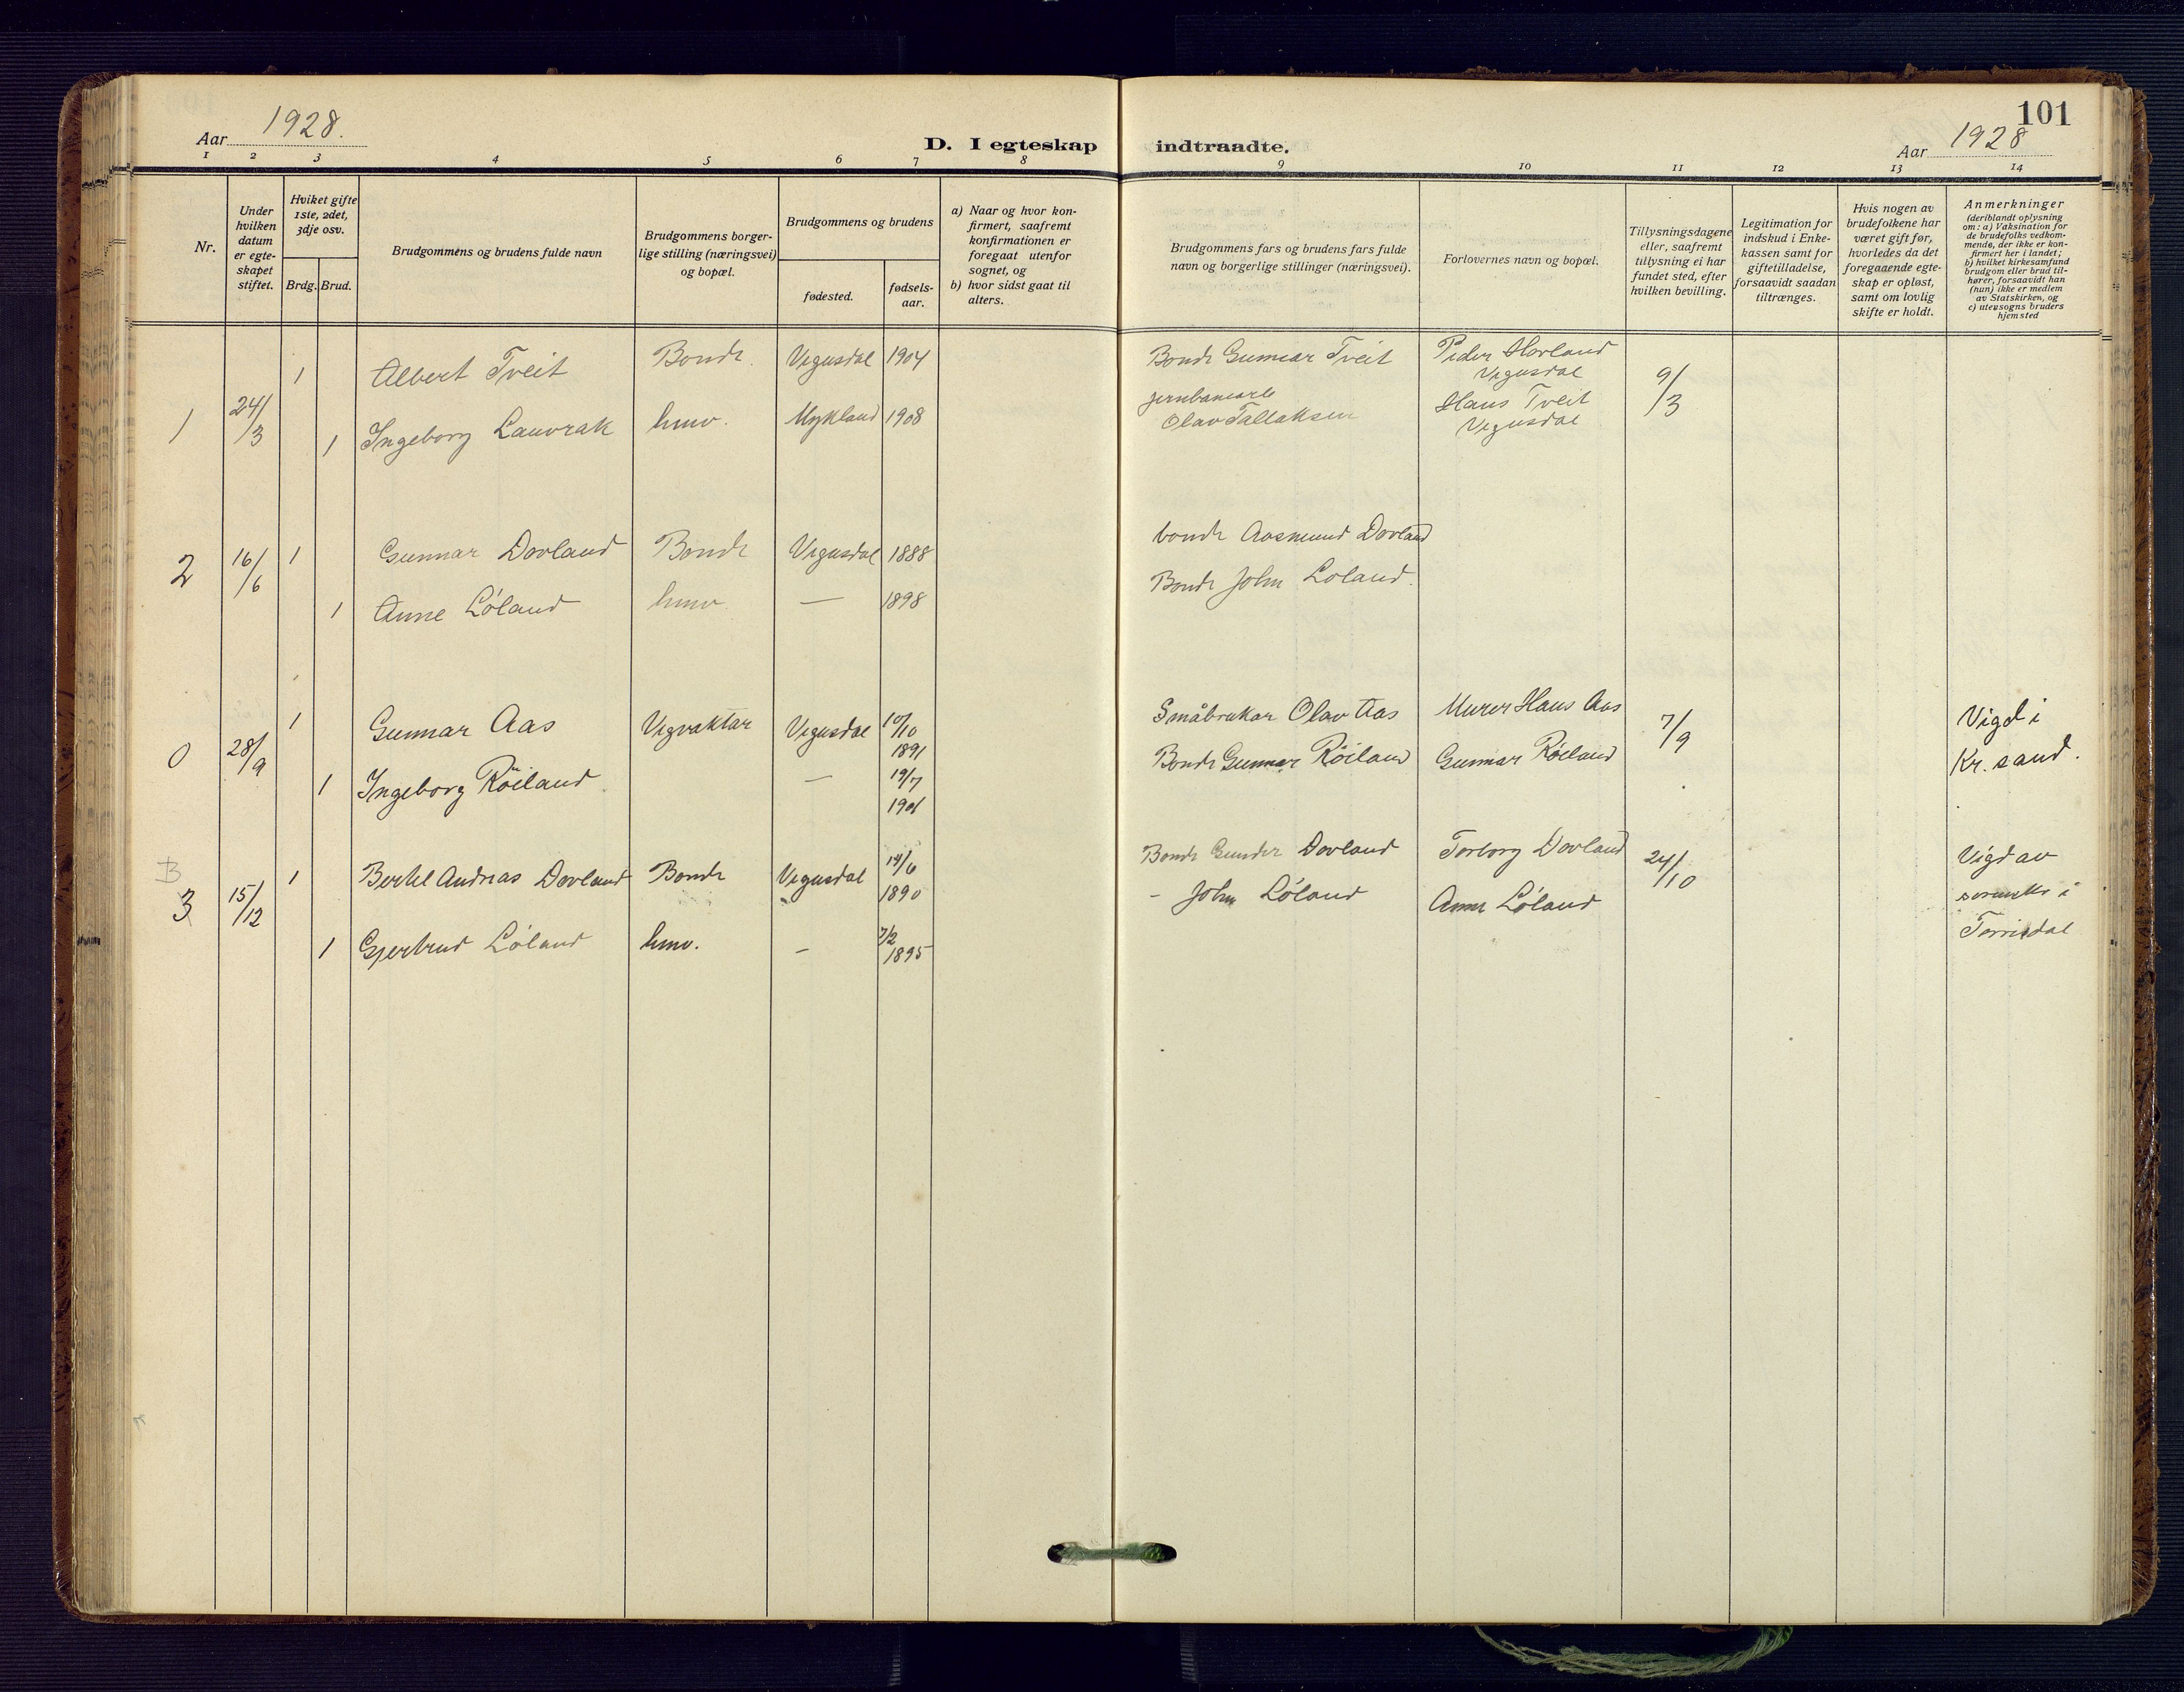 101
Aar 1928.
D. I egteskap indtraadte.
Aar 1928
1 2 3 4 5 6 7 8 9 10 11 12 13 14
Nr.
Under hvilken datum er egte-skapet stiftet.
Hviket gifte 1ste, 2det, 3dje osv.
Brdg. Brud.
Brudgommens og brudens fulde navn
Brudgommens borger-lige stilling (næringsvei) og bopæl.
Brudgommens og brudens
fødested.
fødsels-aar.
a) Naar og hvor kon-firmert, saafremt konfirmationen er foregaat utenfor sognet, og
b) hvor sidst gaat til alters.
Brudgommens fars og brudens fars fulde navn og borgerlige stillinger (næringsvei).
Forlovernes navn og bopæl.
Tillysningsdagene eller, saafremt tillysning ei har fundet sted, efter hvilken bevilling.
Legitimation for indskud i Enke-kassen samt for giftetilladelse, forsaavidt saadan tiltrænges.
Hvis nogen av brudefolkene har været gift før, hvorledes da det foregaaende egte-skap er opløst, samt om lovlig skifte er holdt.
Anmerkninger
(deriblandt oplysning om: a) Vaksination for de brudefolks vedkom-mende, der ikke er kon-firmert her i landet; b) hvilket kirkesamfund brudgom eller brud til-hører, forsaavidt han (hun) ikke er medlem av Statskirken, og c) utensogns bruders hjemsted
1 24/3 1 Albert Tveit Bonde. Vegusdal 1904 Bonde Gunnar Tveit Peder Hovland Vegusdal 9/3
1 Ingeborg Lauvrak hmv. Mykland 1908 jernbanearb Olav Tallaksen Hans Tveit Vegusdal
2 16/6 1 Gunnar Dovland Bonde Vegusdal 1888 bonde Aasmund Dovland
1 Anne Løland hmv. — 1898 Bonde John Løland.
0 28/9 1 Gunnar Aas Vegvaktar Vegusdal 10/10 1891 Småbrukar Olav Aas Murer Hans Aas 7/9 Vigd i
1 Ingeborg Röiland — 19/7 1906 Bonde Gunnar Röiland Gunnar Röiland Kr. sand.
B
3 15/12 1 Bertel Andreas Dovland Bonde Vegusdal 14/6 1890 Bonde Gunder Dovland Torborg Dovland 24/10 Vigd av
1 Gjertrud Løland hmv. — 7/2 1895 - John Løland Anne Løland
Torrisdal